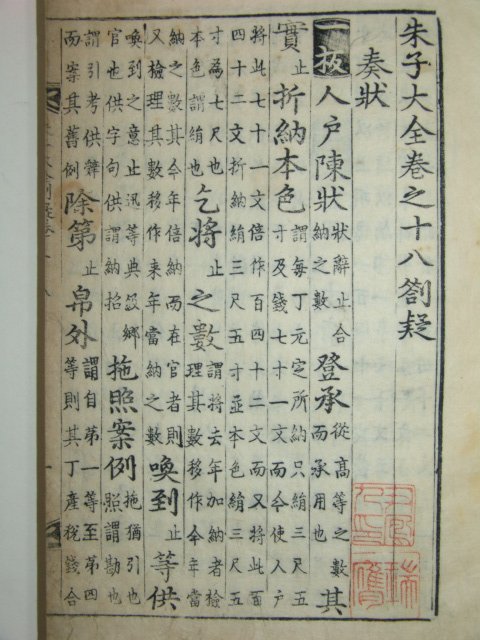 朱子大全卷之十八劄疑
奏狀
板人戶陳狀狀辭止合納之數登承從高等之數而承用也其
實止折納本色謂每丁元定所納只絹三尺五寸及錢七十一文而今使人户
將此七十一文倍作百四十二文而又將此百四十二文折納絹三尺五寸並本色絹三尺五
寸為七尺也本色謂絹也乞將止之數謂將去年加納者檢理其數移作今年當
納之數其今年倍納而在官者則又檢理其數移作來年當納之數喚到止等供
喚到之意止迅等典級鄉官也供字句供謂納招拖照案例拖猶引也照謂勘也
謂引考供辭而案其舊例除第止帛外謂自第一等至第四等則其丁產稅錢合